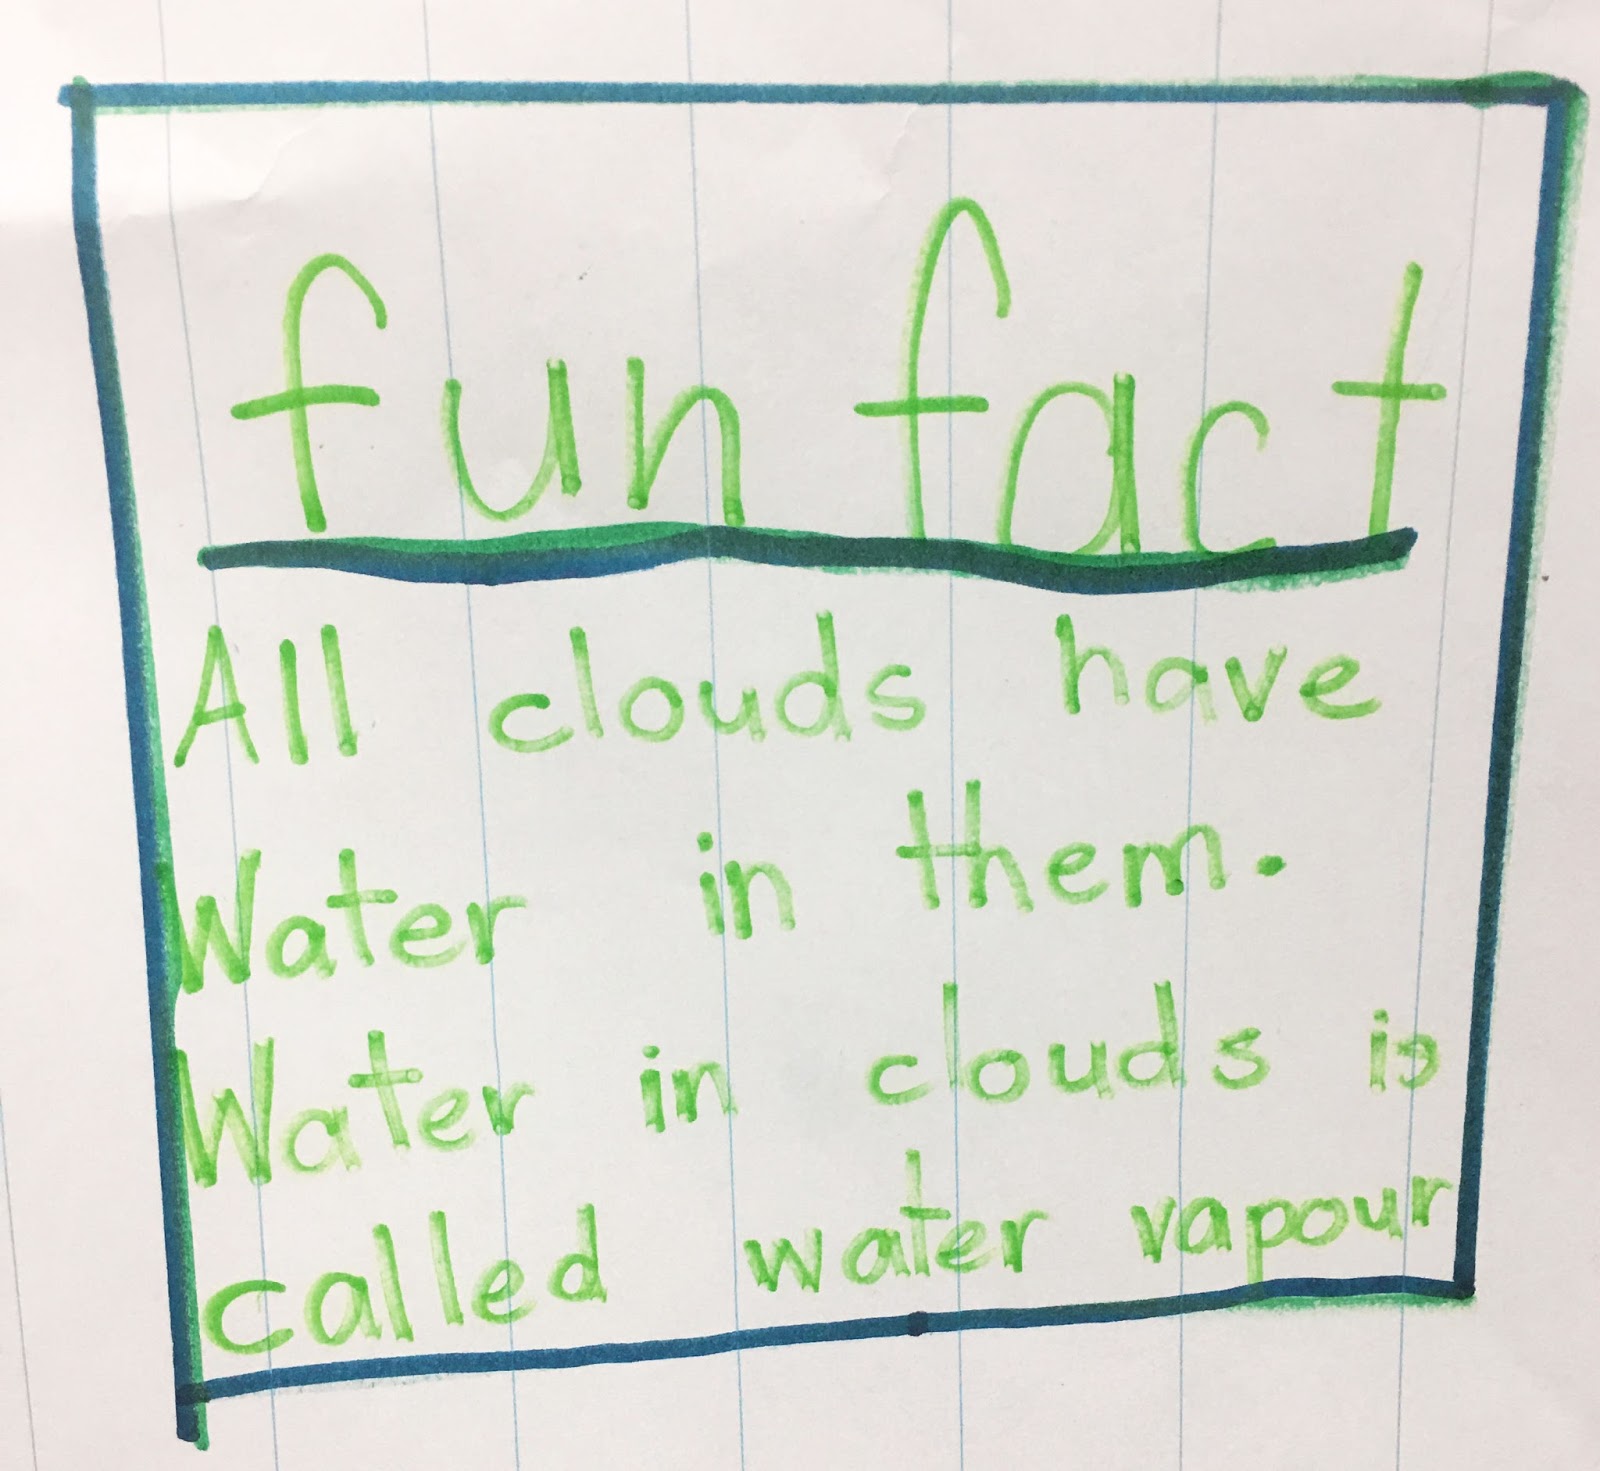 fun fact
All clouds have
Water in them.
Water in clouds is
called water vapour